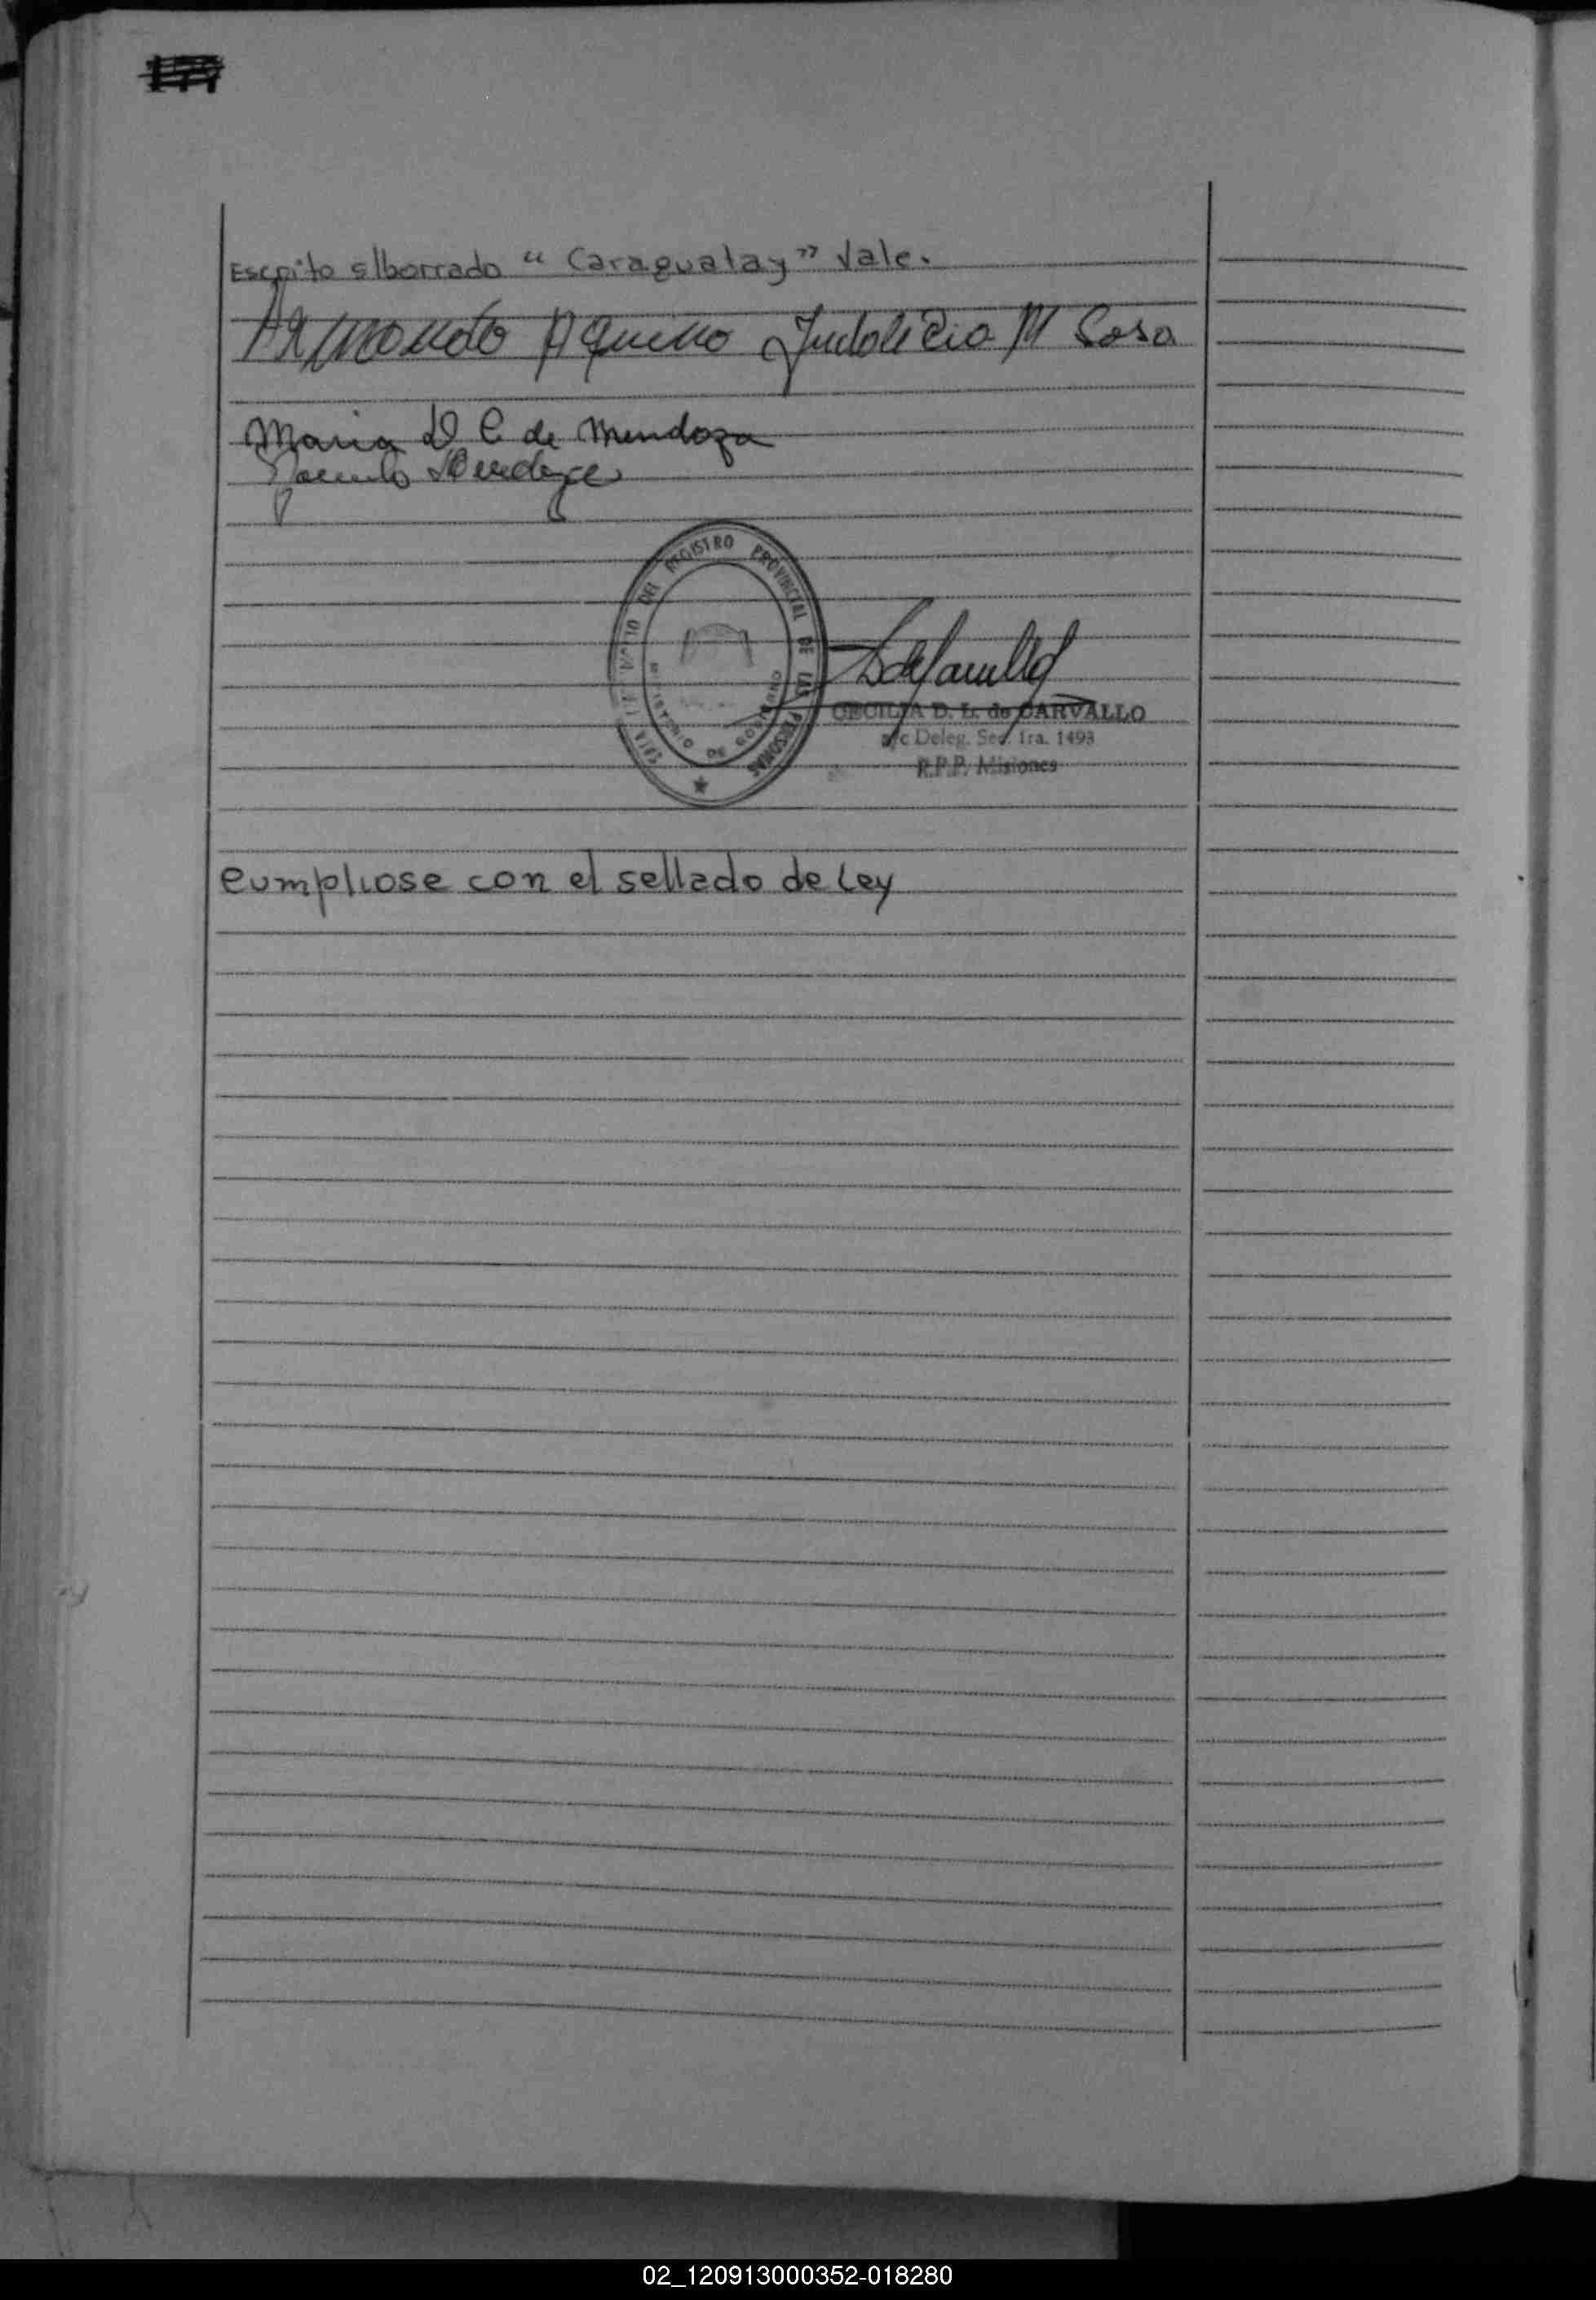 Escrito s/borrado "Caraguatay" Vale.
Armando Aquino Indalicio M Sosa
Maria D C de Mendoza
Mendoza
DEL REGISTRO PROVINCIAL DE LAS PERSONAS
MINISTERIO DE GOBIERNO
CECILIA D. L. de CARVALLO
a/c Deleg. Sec. 1ra. 1493
R.P.P. Misiones
Cumpliose con el sellado de Ley
02_120913000352-018280